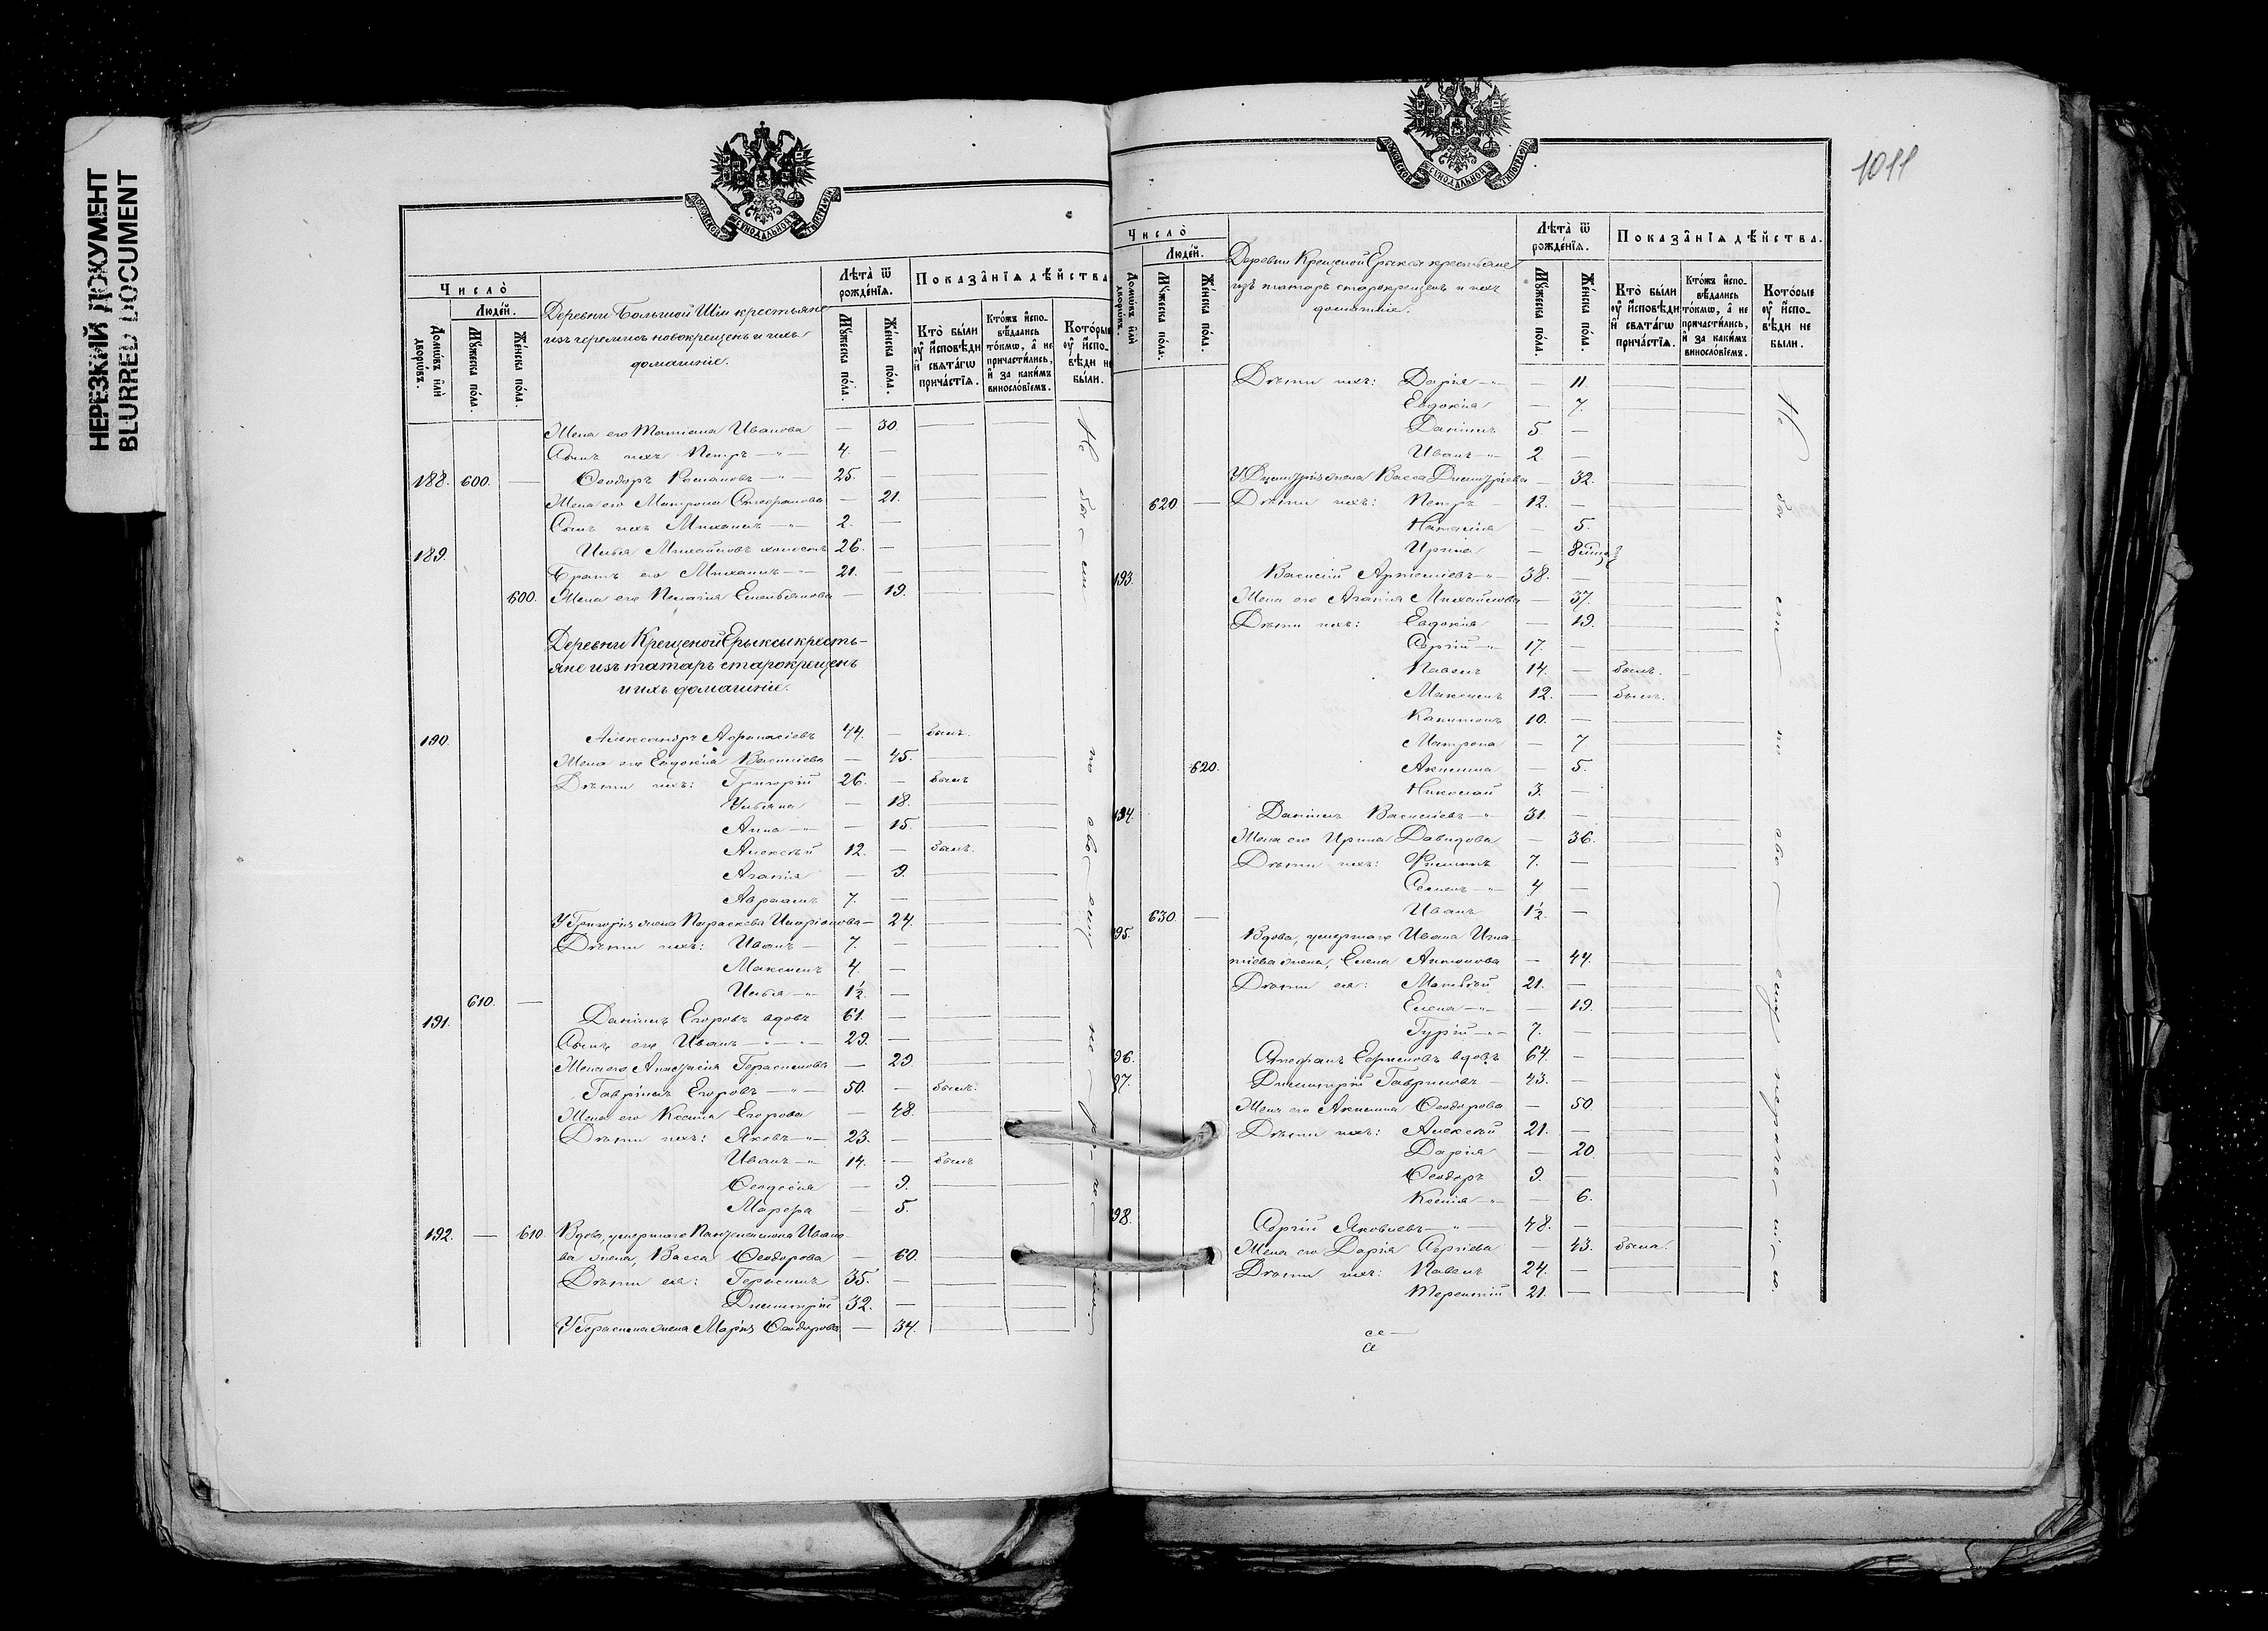 НЕРЕЗКИЙ ДОКУМЕНТ
BLURRED DOCUMENT
Число̀
Людéй.
Домѡвъ и҆лѝ дворѡ́въ.
Мꙋ́жеска по́ла.
Же́нска по́ла.
Деревни Большой Ши крестьяне
изъ черемисъ новокрещенъ и ихъ
домашніе.
Лѣта̀ ѿ рожде́нїѧ.
Мꙋ́жеска по́ла.
Же́нска по́ла.
Показа̂нїѧ дѣ́йства
Кто̀ бы́ли ᲂу҆ и҆́сповѣди и҆ свѧта́гѡ прича́стїѧ.
Кто́жъ и҆спо-вѣ́дались то́кмѡ, а҆ не причасти́лись, и҆ за каки́мъ винослóвїемъ.
Кото́рые ᲂу҆ и҆спо-вѣди не бы́ли.
Жена его Татіана Иванова — 30.
Сынъ ихъ Петръ —"— 4. —
188. 600. — Ѳеодоръ Романовъ —"— 25. —
Жена его Матрона Стефанова — 21.
Сынъ ихъ Михаилъ —"— 2. —
189. Илья Михайловъ холостъ 26. —
Братъ его Михаилъ —"— 21. —
600. Жена его Пелагія Емельянова — 19.
Деревни Крещеной Ерыксы кресть-
яне изъ татаръ старокрещенъ
и ихъ домашніе.
190. Александръ Аѳанасіевъ 44. — былъ.
Жена его Евдокія Василіева — 45.
Дѣти ихъ: Григорій 26. — былъ
Ульяна — 18.
Анна —"— — 15.
Алексѣй 12. — былъ.
Агапія — 9.
Авраамъ 7. —
У Григорія жена Параскева Иларіонова — 24.
Дѣти ихъ: Иванъ — 7. —
Максимъ 4. —
610. — Илья —"— 1½. —
191. Даніилъ Егоровъ вдовъ 61. —
Сынъ его Иванъ —"—"— 29. —
Жена его Анастасія Герасимова — 29.
Гавріилъ Егоровъ —"— 50. — былъ.
Жена его Ксенія Егорова — 48.
Дѣти ихъ: Яковъ —"— 23. —
Иванъ —"— 14. — былъ
Ѳеодосія — 9.
Марѳа — 5.
192. — 610. Вдова, умершаго Пантелеимона Ивано
ва жена, Васса Ѳеодорова — 60.
Дѣти ея: Герасимъ 35. —
Димитрій 32. —
У Герасима жена Марія Ѳеодорова — 34.
Не бы-ли по сво-ему
1011
Число̀
Людéй.
Домѡвъ и҆лѝ дворѡ́въ.
Мꙋ́жеска по́ла.
Же́нска по́ла.
Деревни Крещеной Ерыксы крестьяне
изъ татаръ старокрещенъ и ихъ
домашніе.
Лѣта̀ ѿ рожде́нїѧ.
Мꙋ́жеска по́ла.
Же́нска по́ла.
Показа̂нїѧ дѣ́йства.
Кто̀ бы́ли ᲂу҆ и҆́сповѣди и҆ свѧта́гѡ прича́стїѧ.
Кто́жъ и҆спо-вѣ́дались то́кмѡ, а҆ не причасти́лись, и҆ за каки́мъ винослóвїемъ.
Кото́рые ᲂу҆ и҆спо-вѣди не бы́ли.
Дѣти ихъ: Дарія —"— — 11.
Евдокія — 7.
Даніилъ 5 —
Иванъ —"— 2. —
У Димитрія жена Васса Димитріева — 32.
620. — Дѣти ихъ: Петръ — 12. —
Наталія — 5.
Ирина — 8
193. Василій Артеміевъ —"— 38. —
Жена его Агапія Михайлова — 37.
Дѣти ихъ: Евдокія — 19.
Сергій —"— 17. —
Павелъ 14. — былъ.
Максимъ 12. — былъ.
Капитонъ 10. —
Матрона — 7
620. Акилина — 5.
Николай 3. —
194. Даніилъ Василіевъ —"— 31. —
Жена его Ирина Давидова — 36.
Дѣти ихъ: Филиппъ 7. —
Семенъ —"— 4 —
630 — Иванъ 1½. —
95. Вдова, умершаго Ивана Игна-
тіева жена, Елена Антонова — 44.
Дѣти ея: Матѳей 21. —
Елена —"— — 19.
Гурій —"— 7. —
96. Стефанъ Ефимовъ вдовъ 64. —
97. Димитрій Гавриловъ — 43. —
Жена его Акилина Ѳеодорова — 50.
Дѣти ихъ: Алексѣй 21. —
Дарія — 20.
Ѳеодоръ 9. —
Ксенія —"— — 6.
98. Сергій Яковлевъ —"— 48. —
Жена его Дарія Сергіева — 43. была.
Дѣти ихъ: Павелъ 24. —
Терентій 21. —
Не бы-ли по сво-ему нерадѣ-ні-ю.